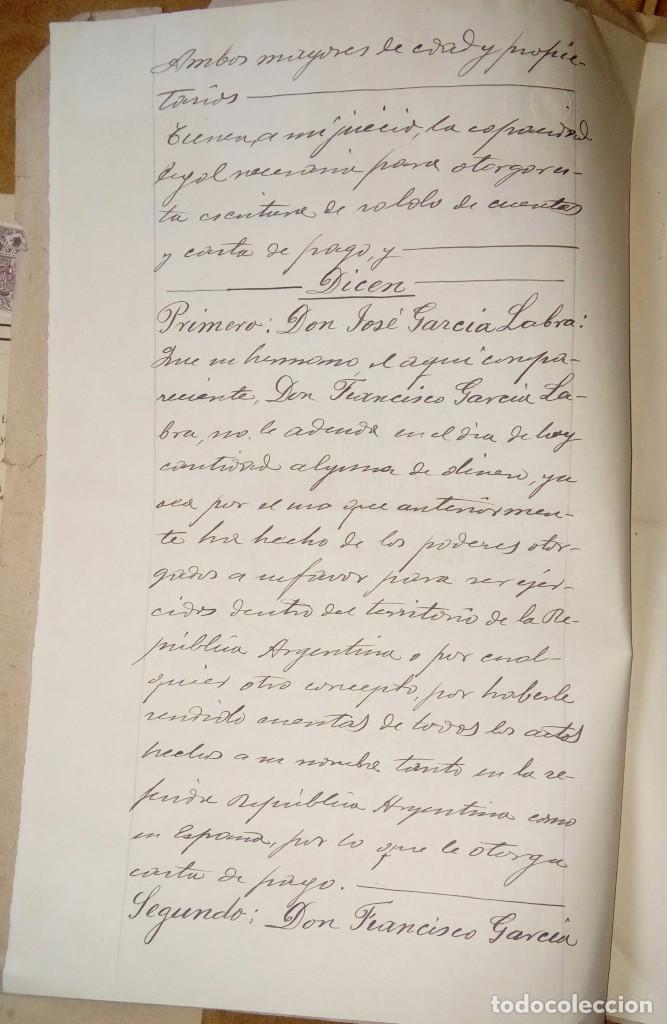 Ambos mayores de edad y propie-
tarios
Tienen, a mi juicio, la capacidad
legal necesaria para otorgar es-
ta escritura de saldo de cuentas
y carta de pago, y
Dicen
Primero: Don José García Labra:
Que su hermano, el aquí compa-
reciente, Don Francisco García La-
bra, no le adeuda en el día de hoy
cantidad alguna de dinero, ya
sea por el uso que anteriormen-
te ha hecho de los poderes otor-
gados a su favor para ser ejer-
cidos dentro del territorio de la Re-
pública Argentina o por cual-
quier otro concepto, por haberle
rendido cuentas de todos los actos
hechos a su nombre tanto en la re-
ferida República Argentina como
en España, por lo que le otorga
carta de pago.
Segundo: Don Francisco García
todocoleccion